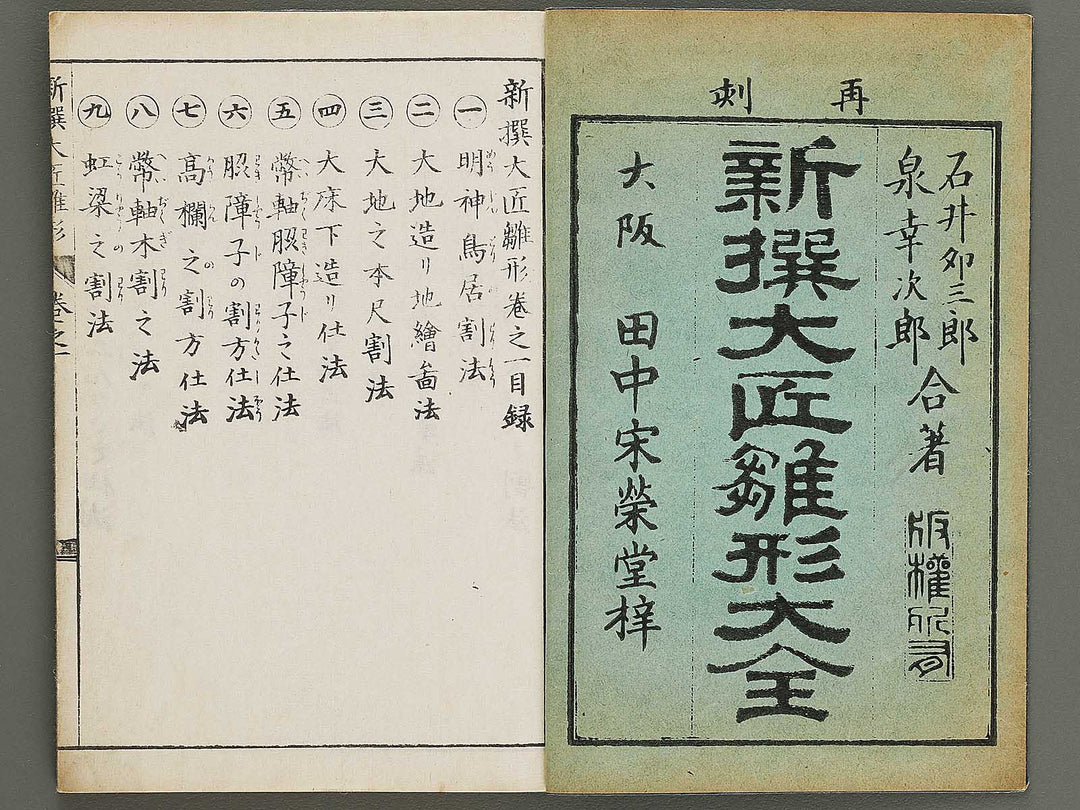 再刻
石井卯三郎
泉幸次郎
合著
版權所有
新撰大匠雛形大全
大阪 田中宋榮堂梓
新撰大匠雛形巻之一目録
一 明神鳥居割法
二 大地造リ地繪啚法
三 大地之本尺割法
四 大床下造リ仕法
五 幣軸脵障子之仕法
六 脵障子の割方仕法
七 髙欄之割方仕法
八 幣軸木割之法
九 虹梁之割法
新撰大匠雛形 巻之一